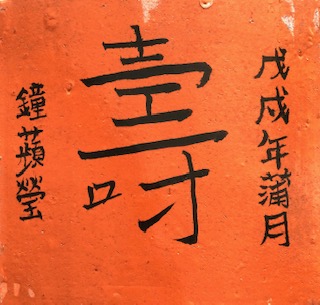 戊戌年蒲月
壽
鐘蘋瑩